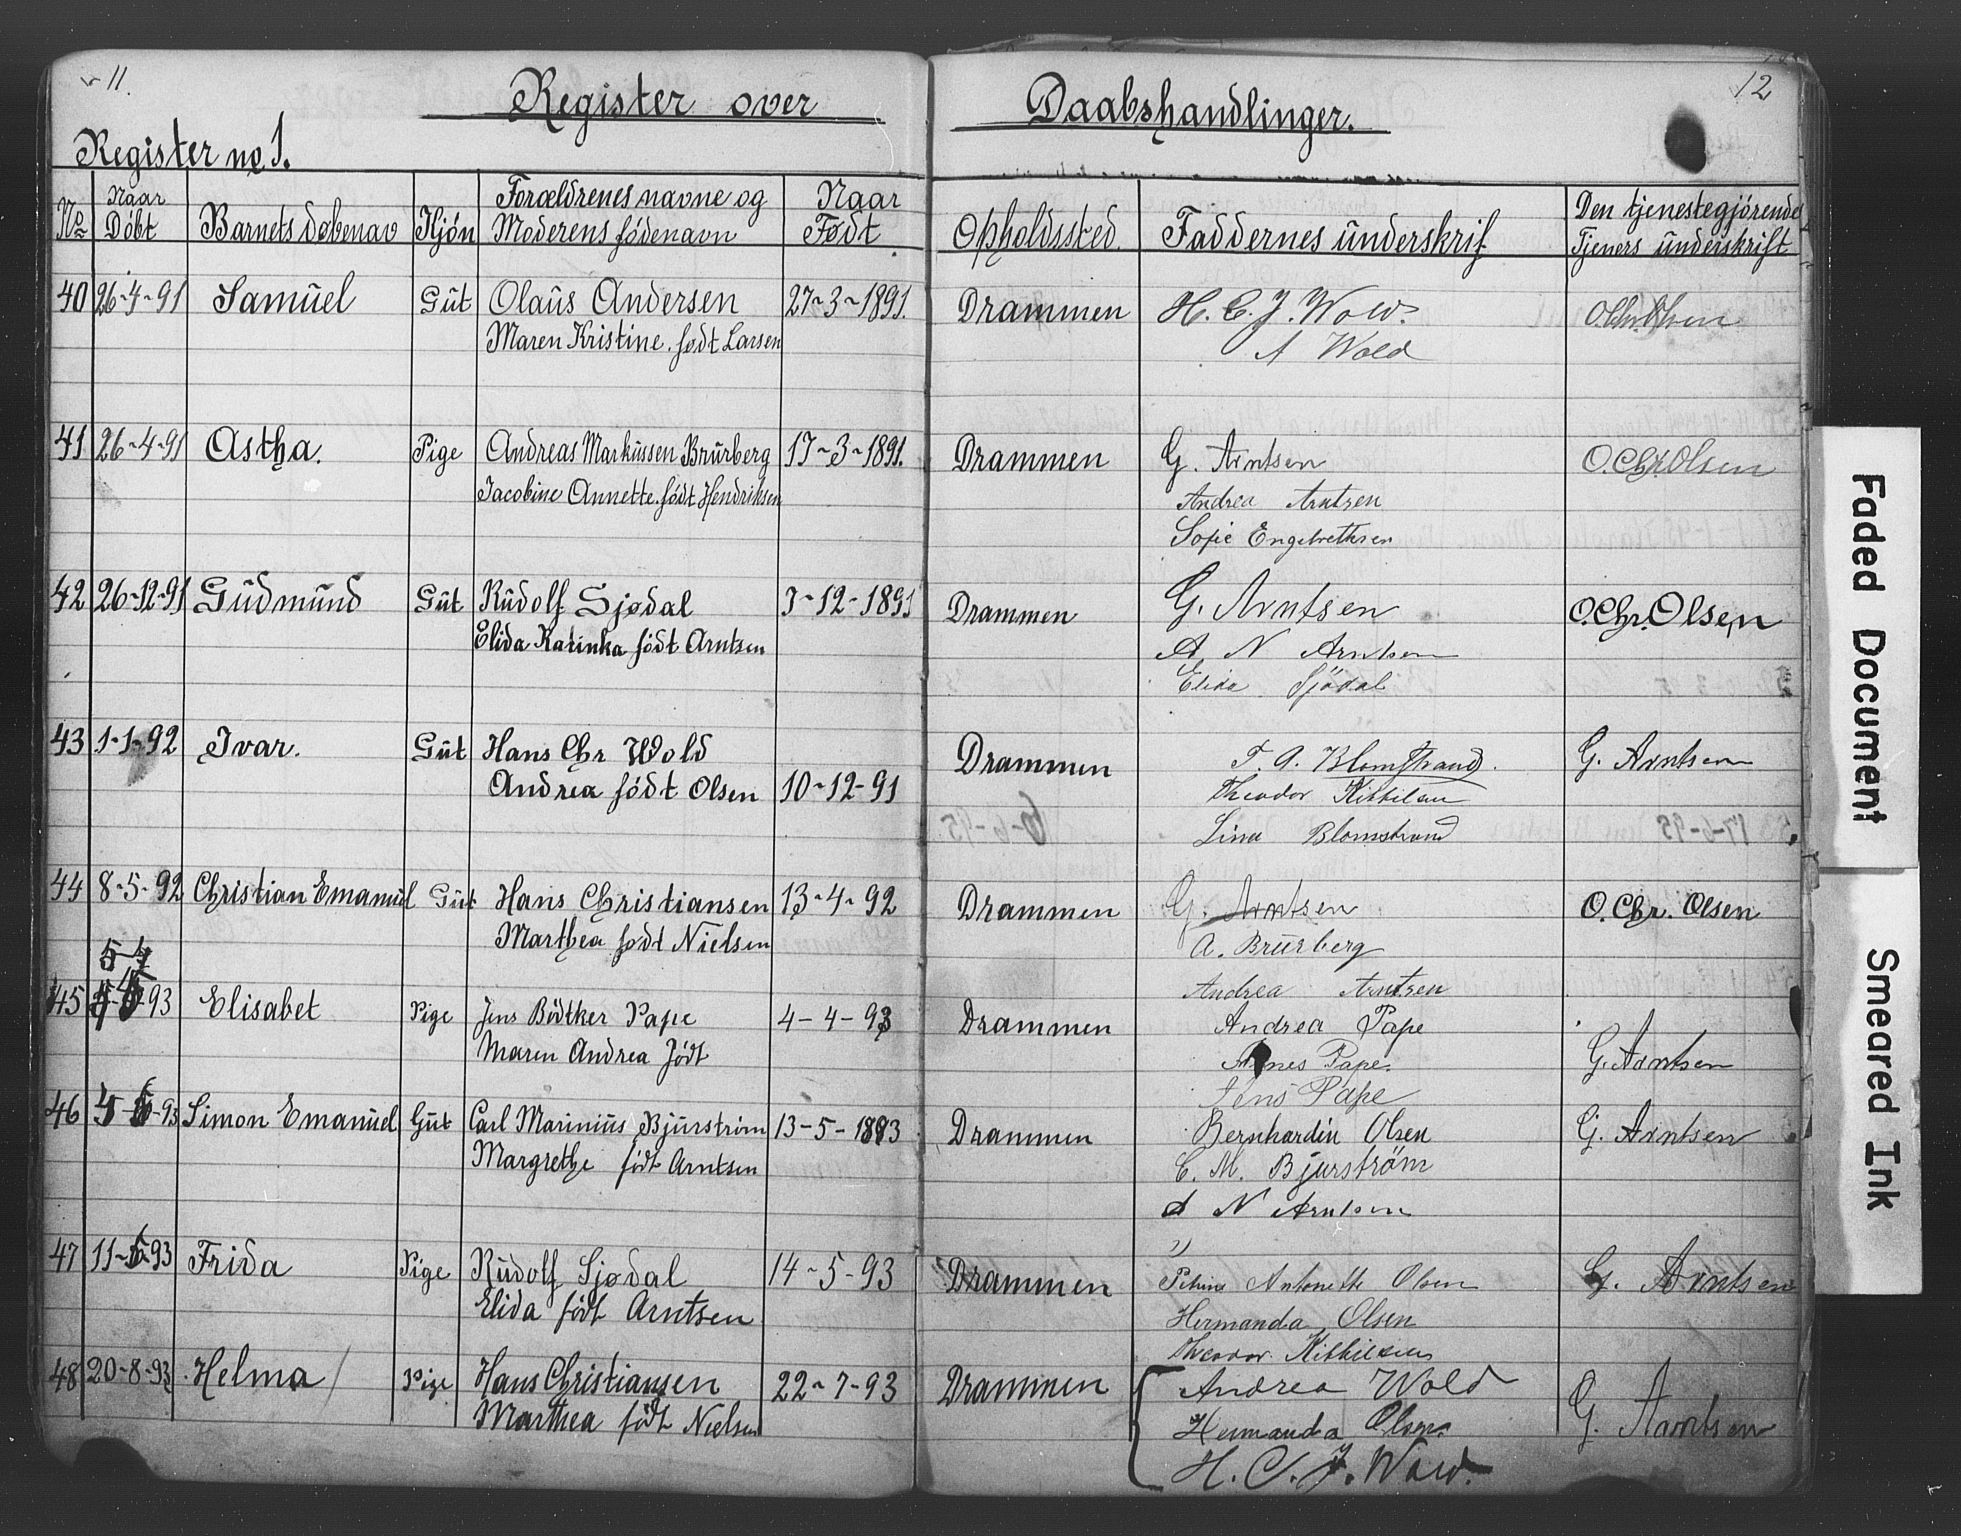 11.
Register over
Daabshandlinger.
12
Register no 1.
No
Naar Döbt
Barnets döbenav
Kjön
Forældrenes navne og Moderens födenavn
Naar Født
Opholdssted.
Faddernes underskrif
Den tjenestegjörende Tjeners underskrift
40 26-4-91 Samuel Gut Olaus Andersen 27-3-1891. Drammen H. C. J. Wold. O.Chr.Olsen
Maren Kristine. født Larsen A Wold
41 26-4-91 Astha. Pige Andreas Markussen Brurberg 17-3-1891. Drammen G. Arntsen O.Chr.Olsen
Jacobine Annette. født Hendriksen Andrea Arntzen
Sofie Engebrethsen
42 26-12-91 Gudmund Gut Rudolf Sjødal 3-12-1891 Drammen G. Arntsen O.Chr.Olsen
Elida Katinka födt Arntsen A N Arntsen
Elida Sjödal
43 1-1-92 Ivar. Gut Hans Chr Wold Drammen F. A. Blomstrand. G. Arntsen
Andrea födt Olsen 10-12-91 Theodor Kittilsen
Lina Blomstrand
44 8-5-92 Christian Emanuel Gut Hans Christiansen 13-4-92 Drammen G. Arntsen O. Chr. Olsen
Marthea født Nielsen A. Brurberg
Andrea Arntzen
45 -93 Elisabet Pige Jens Bödtker Pape 4-4-93 Drammen Andrea Pape
Maren Andrea födt Agnes Pape. G. Arntsen
Jens Pape
46 -93 Simon Emanuel Gut Carl Marinius Bjurström 13-5-1893 Drammen Bernhardin Olsen G. Arntsen
Margrethe födt Arntsen C. M. Bjurström
A N Arntsen
47 11-6-93 Frida Pige Rudolf Sjødal 14-5-93 Drammen Petrine Antonette Olsen G. Arntsen
Elida født Arntsen Hermanda Olsen
Theodor Kittilsen
48 20-8-93 Helma Pige Hans Christiansen 22-7-93 Drammen Andrea Wold G. Arntsen
Marthea födt Nielsen Hermanda Olsen.
H. C. J. Wold.
Faded Document
Smeared Ink